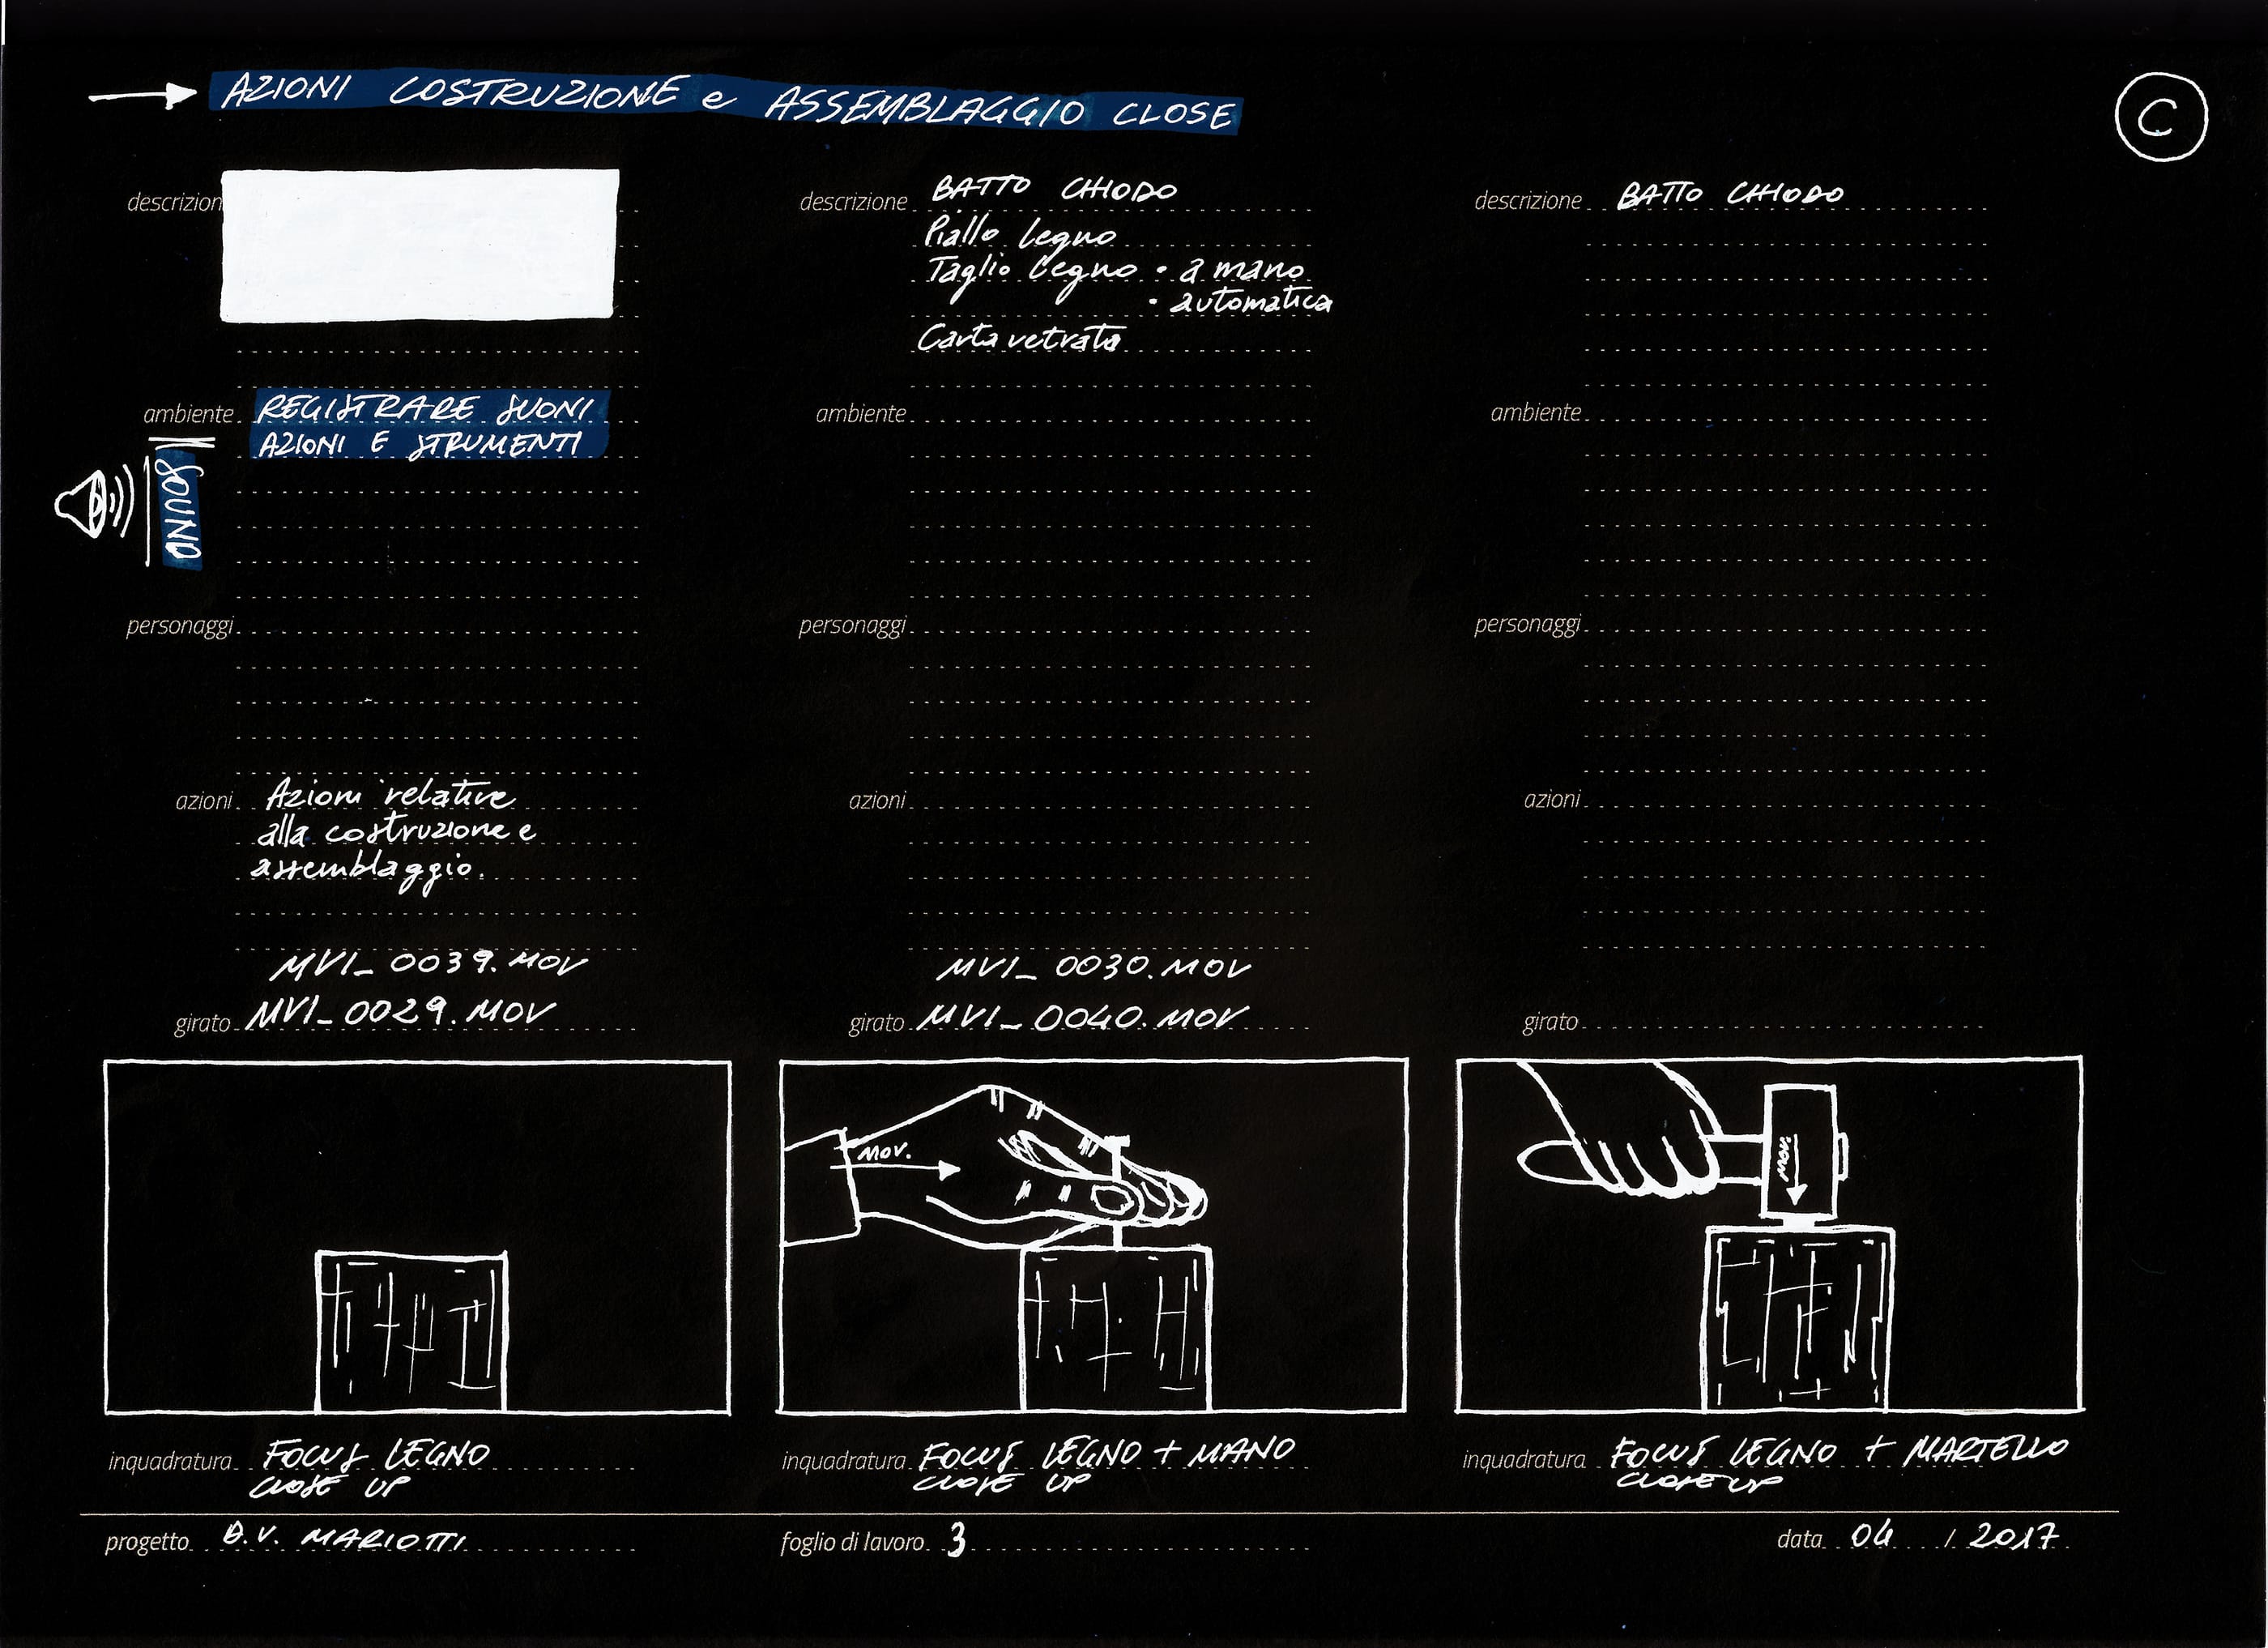 AZIONI COSTRUZIONE e ASSEMBLAGGIO CLOSE
C
descrizion
ambiente REGISTRARE SUONI
AZIONI E STRUMENTI
SOUND
personaggi
azioni Azioni relative
alla costruzione e
assemblaggio.
MVI_0039.MOV
girato MVI_0029.MOV
inquadratura FOCUS LEGNO
CLOSE UP
descrizione BATTO CHIODO
Piallo legno
Taglio legno • a mano
• automatica
Carta vetrata
ambiente
personaggi
azioni
MVI_0030.MOV
girato MVI_0040.MOV
MOV.
inquadratura FOCUS LEGNO + MANO
CLOSE UP
descrizione BATTO CHIODO
ambiente
personaggi
azioni
girato
MOV.
inquadratura FOCUS LEGNO + MARTELLO
CLOSE UP
progetto D.V. MARIOTTI
foglio di lavoro 3
data 04 / 2017